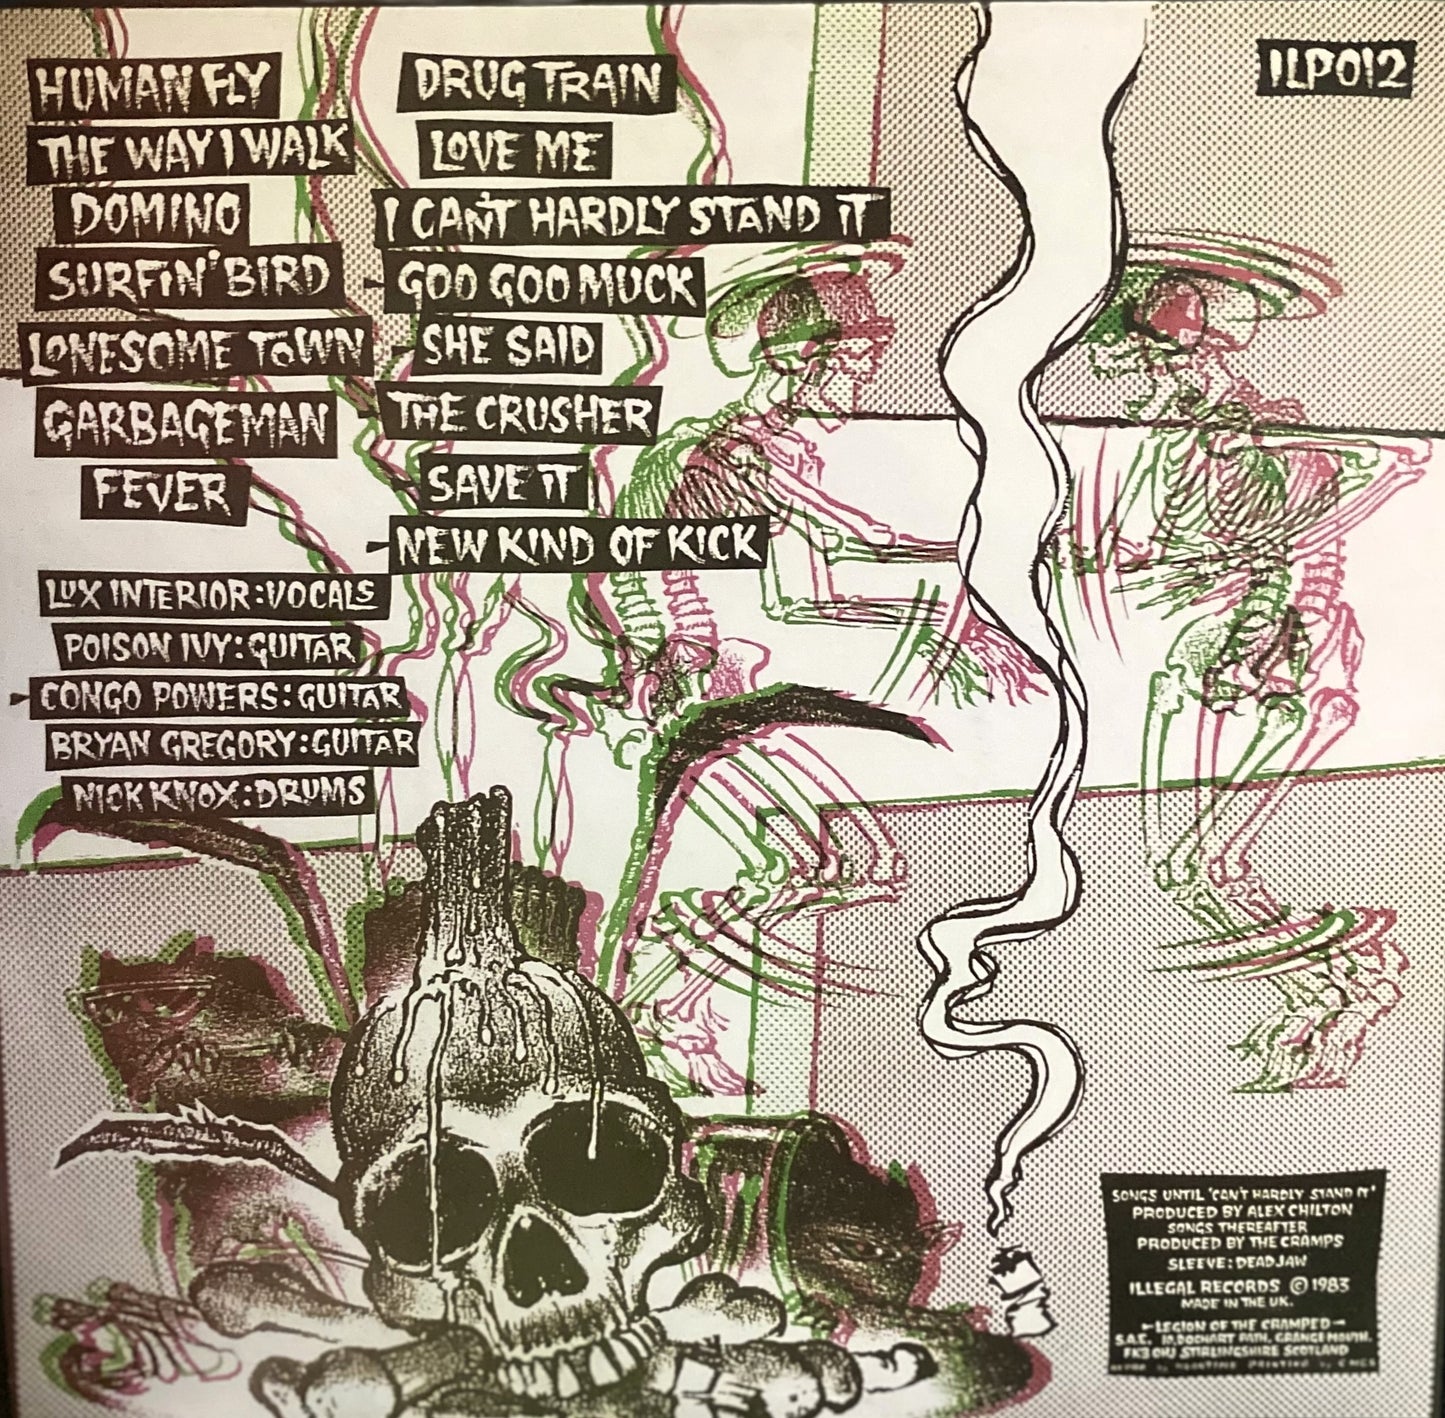 HUMAN FLY
THE WAY I WALK
DOMINO
SURFIN' BIRD
LONESOME TOWN
GARBAGEMAN
FEVER
DRUG TRAIN
LOVE ME
I CAN'T HARDLY STAND IT
GOO GOO MUCK
SHE SAID
THE CRUSHER
SAVE IT
NEW KIND OF KICK
LUX INTERIOR:VOCALS
POISON IVY:GUITAR
CONGO POWERS:GUITAR
BRYAN GREGORY:GUITAR
NICK KNOX:DRUMS
ILP012
SONGS UNTIL 'CAN'T HARDLY STAND IT'
PRODUCED BY ALEX CHILTON
SONGS THEREAFTER
PRODUCED BY THE CRAMPS
SLEEVE: DEADJAW
ILLEGAL RECORDS © 1983
MADE IN THE UK.
-LEGION OF THE CRAMPED-
S.A.E., 10, DOCHART PATH, GRANGEMOUTH.
FK3 0HJ STIRLINGSHIRE SCOTLAND